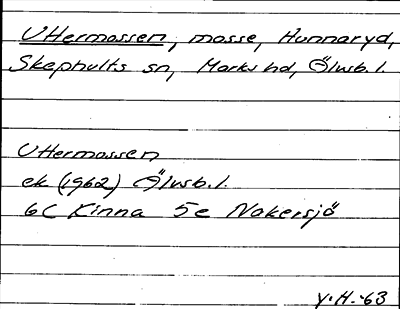 Uttermossen, mosse, Hunnaryd,
Skephults sn, Marks hd, Älvsb. l.
Uttermossen
ek (1962) Älvsb. l.
6C Kinna 5e Nakersjö
Y.H.-63